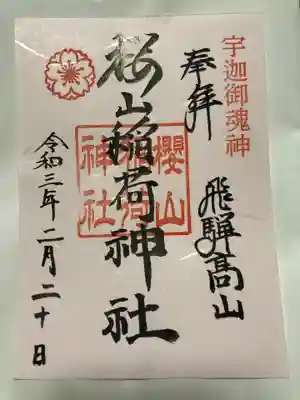 宇迦御魂神
奉拜
飛騨高山
桜山稲荷神社
櫻山
稲荷
神社
令和三年二月二十日